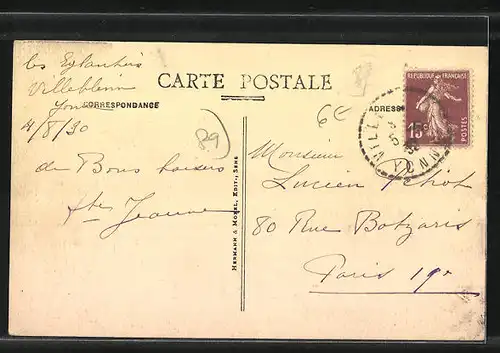 les Eglantiers
Villeblevin
Yonne
4/8/30
CARTE POSTALE
CORRESPONDANCE
ADRESSE
6€
89
REPUBLIQUE FRANÇAISE
15c
POSTES
VILLE
YONNE
de Bons baisers
Jeanne
HERMANN & MOREL, EDIT., SENS
Monsieur
Lucien
80 Rue Botzaris
Paris 19e